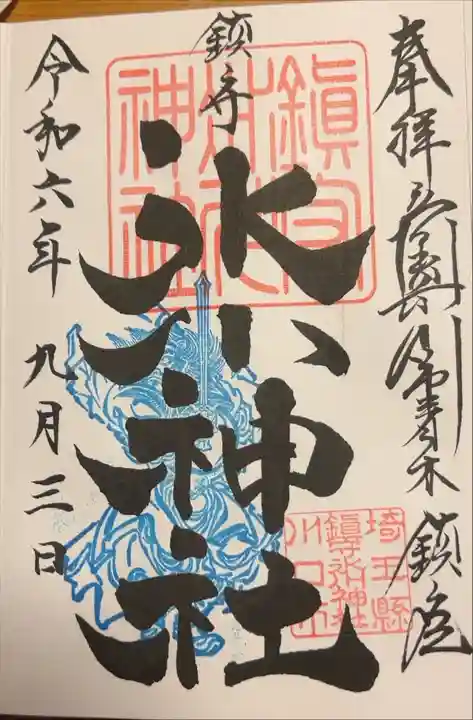 奉拝
青木
鎮座
鎮守
氷川神社
令和六年 九月三日
鎭守
神社
埼玉縣
鎭守氷川神社
川口市